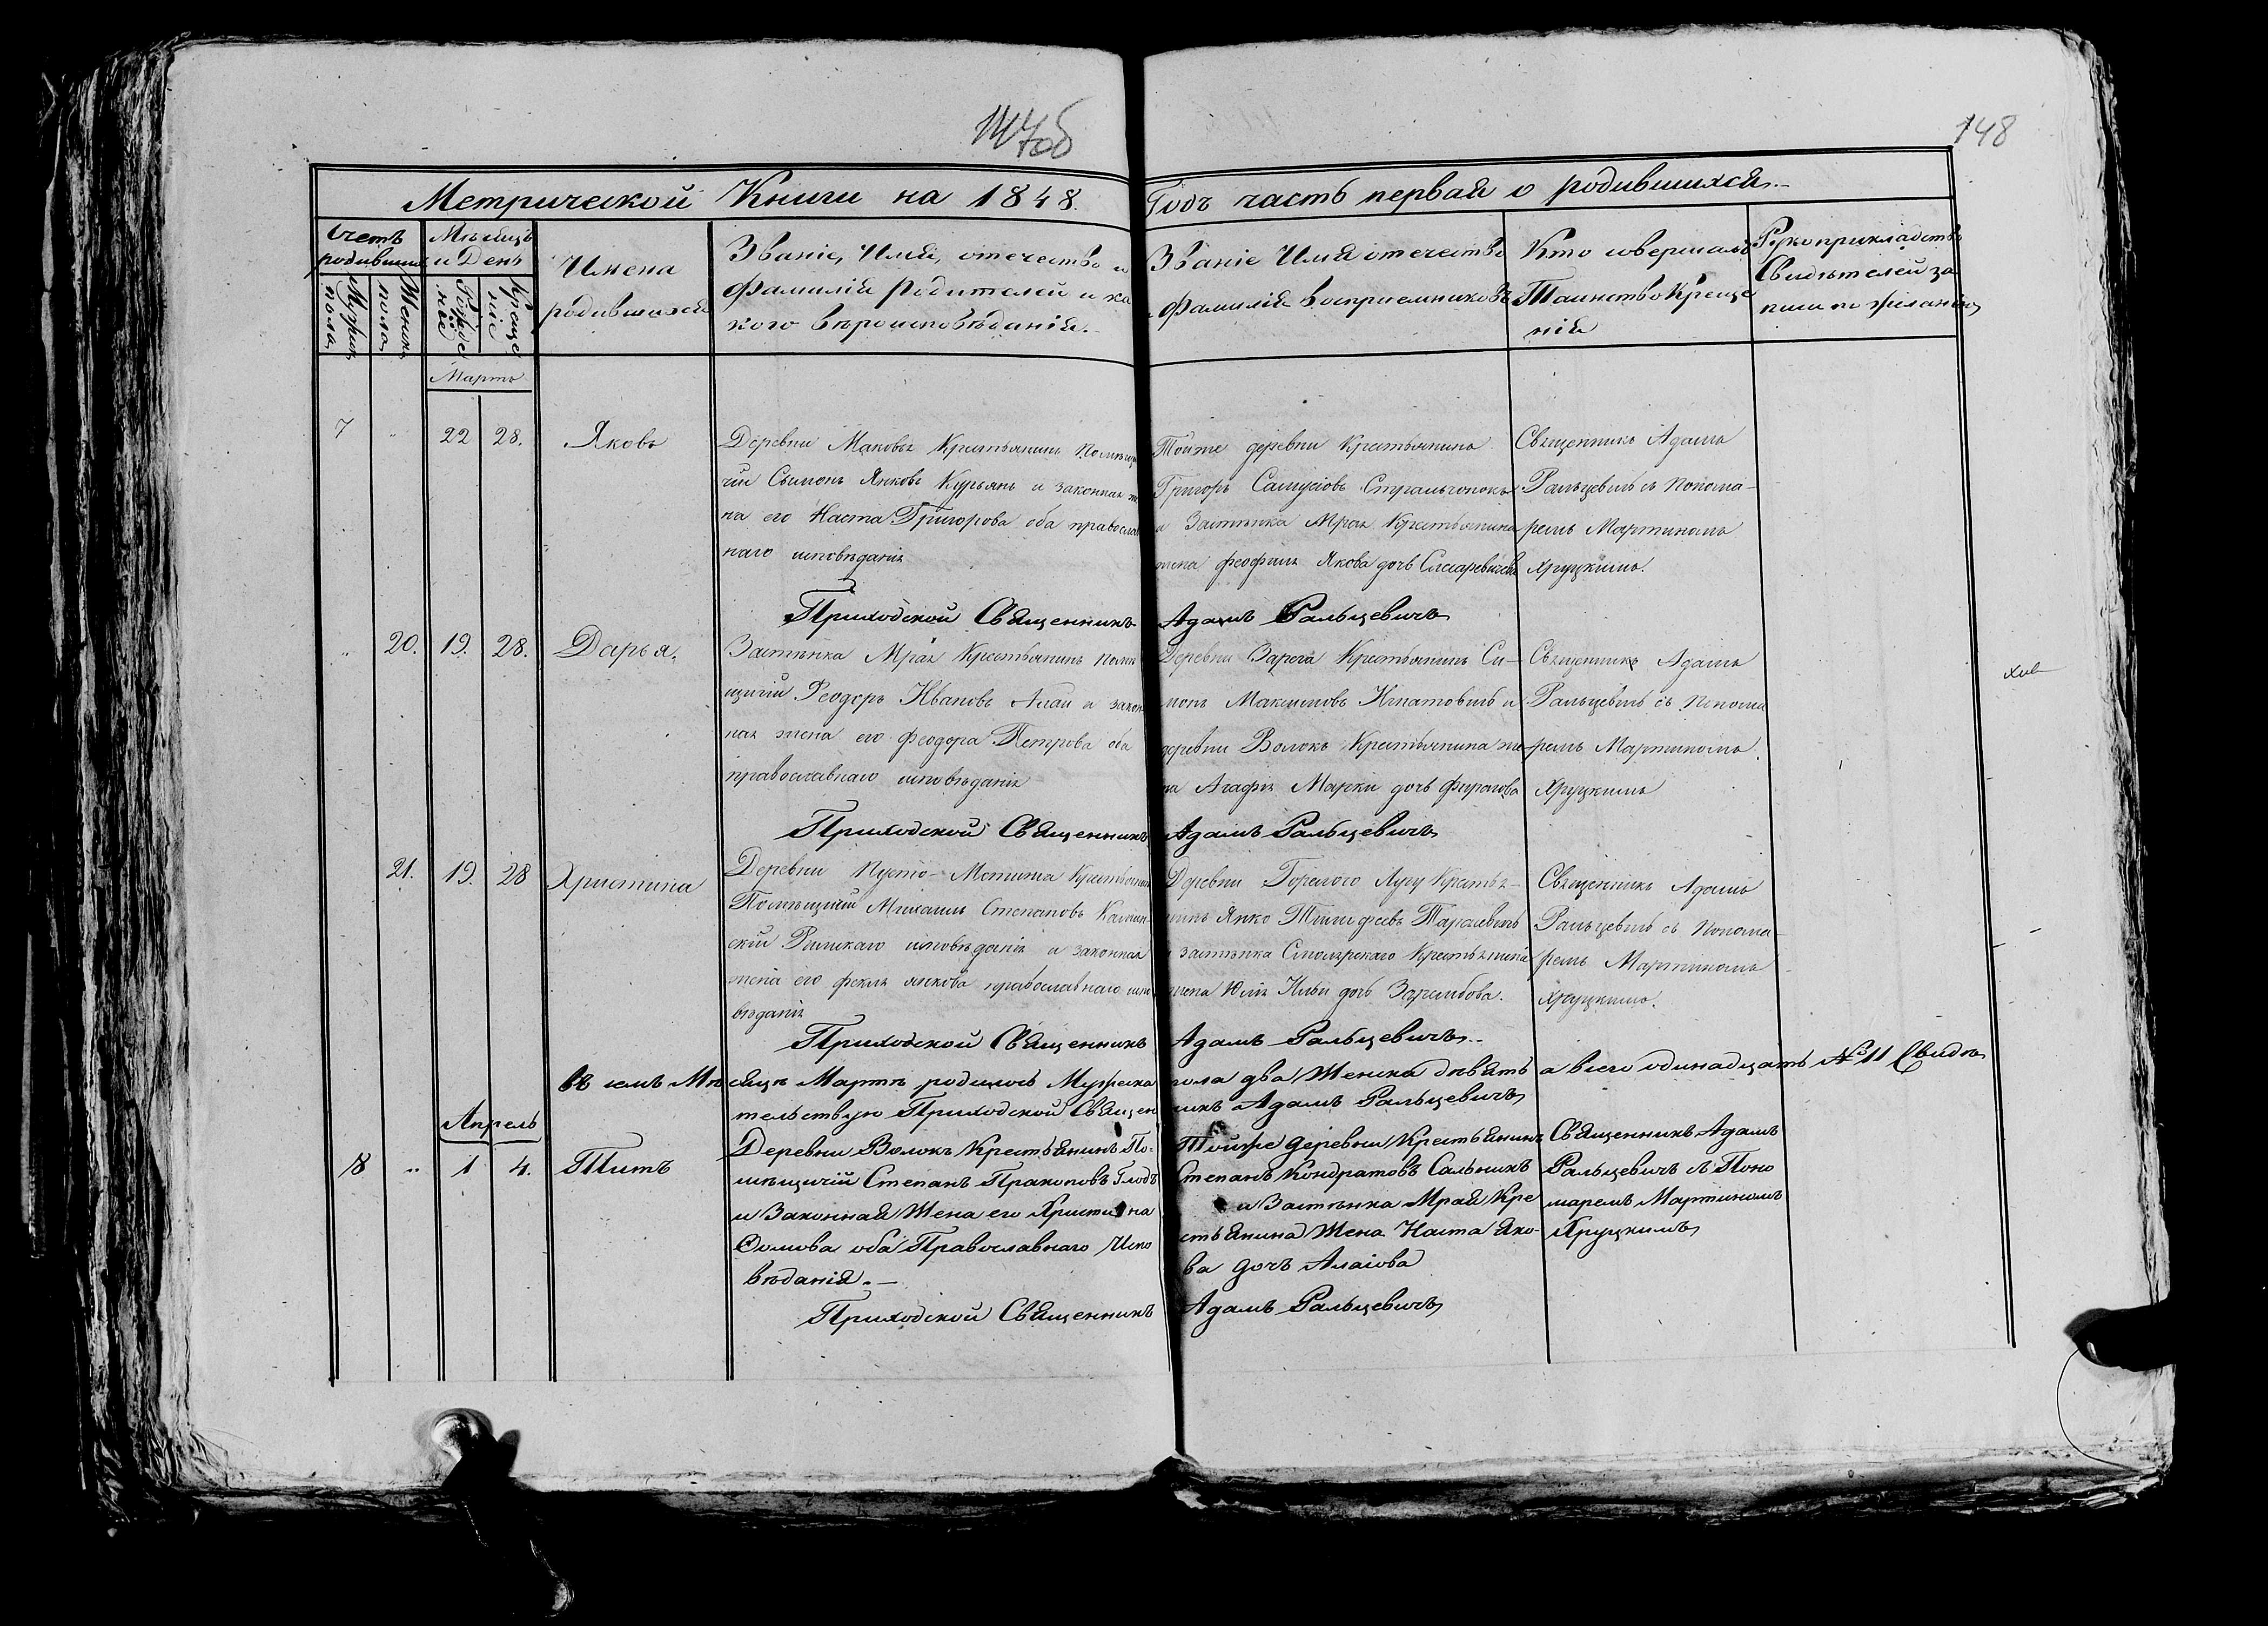 148
Метрической Книги на 1848. Годъ часть первая о родившихся.
Счетъ родившихся
Мужеска пола
Женска пола
Мѣсяцъ и День
Рождение
Крещеніе
Имена
родившихся
Званіе, Имя, отечество и
фамилія Родителей и ка
кого вѣроисповѣданія.
Званіе Имя отечество
фамилія воспріемниковъ
Кто совершалъ
Таинство Креще
нія
Рукоприкладство
Свидѣтелей за
писи по желанію
Мартъ
7 " 22 28. Яковъ
Деревни Маковья Крестьянинъ Помѣщи
чій Сымонъ Янковъ Курьянъ и законная же
на его Наста Григорова оба православ
наго исповѣданія
Тойже деревни Крестьянинъ
Григоръ Самусіовъ
и Застѣнка Мрая Крестьянина
жена Феофила Якова дочь
Священникъ Адамъ
Ральцевичъ съ Понома-
ремъ Мартиномъ
Хруцкимъ.
Приходской Священникъ Адамъ Ральцевичъ
" 20. 19. 28. Дарья.
Застѣнка Мрая Крестьянинъ Помѣ
щичій Феодоръ Ивановъ Алай и закон
ная жена его Феодора Петрова оба
православнаго исповѣданія
Деревни Зарога Крестьянинъ Си-
монъ Максимовъ Игнатовичъ и
деревни Волокъ Крестьянина же
на Агафія Марки дочь
Священникъ Адамъ
Ральцевичъ съ Понома
ремъ Мартиномъ
Хруцкимъ
Приходской Священникъ Адамъ Ральцевичъ
21. 19. 28 Христина
Деревни Пусто-Мстижа Крестьянинъ
Помѣщичій Михаилъ Степановъ
скій Римскаго исповѣданія и законная
жена его Фекла Янкова православнаго испо
вѣданія
Деревни Горелого Лугу Крестья-
нинъ Янко Тимофеевъ Тарасевичъ
и застѣнка Смолярскаго Крестьянина
жена Юлія Ильи дочь Зарембова.
Священникъ Адамъ
Ральцевичъ съ Понома-
ремъ Мартиномъ
Хруцкимъ.
Приходской Священникъ Адамъ Ральцевичъ
въ семъ Мѣсяцѣ Мартѣ родилось Мужеска пола два Женска дѣвять а всего одинадцать № 11 Свидѣ
тельствую Приходской Священникъ Адамъ Ральцевичъ
Апрель
8 " 1 4. Титъ
Деревни Волокъ Крестьянинъ По-
мѣщичій Степанъ Пракоповъ Глодъ
и Законная Жена его Христина
Сомова оба Православнаго Испо
вѣданія.—
Тойже деревни Крестьянинъ
Степанъ Кондратовъ Сальникъ
и Застѣнка Мрая Кре
стьянина Жена Наста Яко-
ва дочь Алаіова
Священникъ Адамъ
Ральцевичъ съ Поно
маремъ Мартиномъ
Хруцкимъ
Приходской Священникъ Адамъ Ральцевичъ